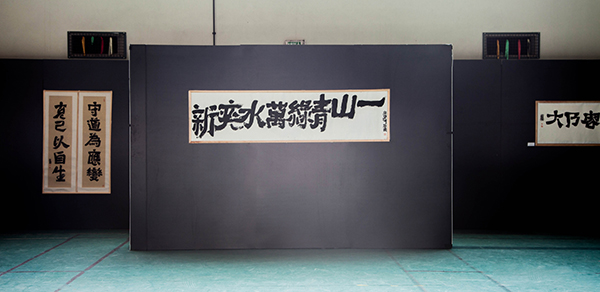 守道為應變
己以自生
一山青綠萬水爽新
乃大